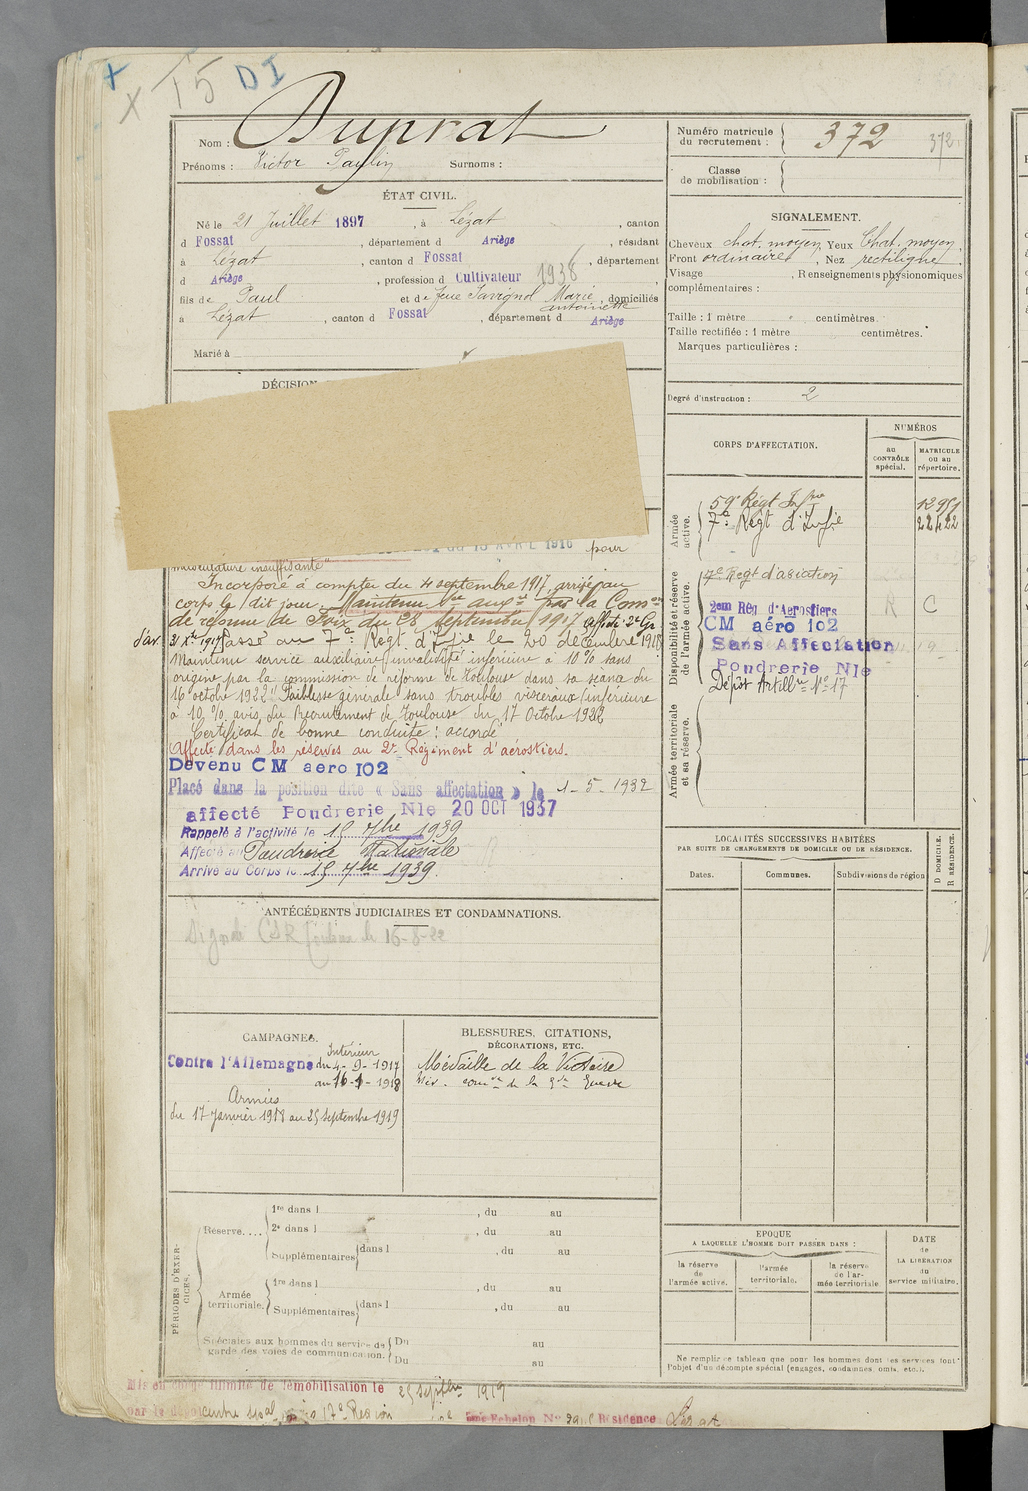 T5 DI
Nom : Duprat
Prénoms : Victor Paulin Surnoms :
Numéro matricule du recrutement : 372 372
Classe de mobilisation :
ÉTAT CIVIL.
Né le 21 Juillet 1897, à Lézat, canton
d Fossat, département d Ariège, résidant
à Lézat, canton d Fossat, département
d Ariège, profession d Cultivateur 1938
fils de Paul et de feue Savignol Marie antoinette, domiciliés
à Lézat, canton d Fossat, département d Ariège
Marié à
SIGNALEMENT.
Cheveux chat. moyen Yeux Chat. moyen.
Front ordinaire, Nez rectiligne
Visage, Renseignements physionomiques
complémentaires :
Taille : 1 mètre centimètres.
Taille rectifiée : 1 mètre centimètres.
Marques particulières :
Degré d'instruction : 2
DÉCISION
AVRIL 1916 pour
musculature insuffisante"
Incorporé à compter du 4 septembre 1917, arrivé au
corps le dit jour. Maintenu Sce auxre par la Comon
de réforme de Foix du 28 Septembre 1917
Passé au 7e Regt d'Infie le 20 décembre 1918
Maintenu service auxiliaire invalidité inférieure à 10% sans
origine par la commission de réforme de Toulouse dans sa séance du
16 octobre 1922 "Faiblesse générale sans troubles viscéraux (inférieure
à 10 %. avis du Recrutement de Toulouse du 17 Octobre 1922
Certificat de bonne conduite : accordé
Affecté dans les réserves au 2e Régiment d'aérostiers.
Devenu CM aero 102
Placé dans la position dite « Sans affectation » le 1-5-1932
affecté Poudrerie Nle 20 OCT 1937
Rappelé à l'activité le 15 7bre 1939
Affecté au Poudrerie Nationale
Arrivé au Corps le 15 7bre 1939.
CORPS D'AFFECTATION.
NUMÉROS
au CONTRÔLE spécial.
MATRICULE ou au répertoire.
Armée active.
59e Régt Infrie 12951
7e Regt d'Infie 22422
Disponibilité et réserve de l'armée active.
7e Regt d'aviation
2em Reg d'Aerostiers R C
CM aéro 102
Sans Affectation
Poudrerie Nle
Dépôt Artillrie No 17
Armée territoriale et sa réserve.
LOCALITÉS SUCCESSIVES HABITÉES
PAR SUITE DE CHANGEMENTS DE DOMICILE OU DE RÉSIDENCE.
Dates. Communes. Subdivisions de région D DOMICILE. R RÉSIDENCE.
ANTÉCÉDENTS JUDICIAIRES ET CONDAMNATIONS.
CSR Toulouse le 16-8-22
CAMPAGNES.
Intérieur
Contre l'Allemagne du 4-9-1917
au 16-1-1918
Armées
du 17 janvier 1918 au 25 septembre 1919
BLESSURES, CITATIONS,
DÉCORATIONS, ETC.
Médaille de la Victoire
Méd. comve de la Gde Guerre
PÉRIODES D'EXERCICES.
Réserve....
1re dans l, du au
2e dans l, du au
Supplémentaires dans l, du au
Armée territoriale.
1re dans l, du au
Supplémentaires dans l, du au
Spéciales aux hommes du service de garde des voies de communication.
Du au
Du au
EPOQUE
A LAQUELLE L'HOMME DOIT PASSER DANS :
la réserve de l'armée active.
l'armée territoriale.
la réserve de l'armée territoriale.
DATE de LA LIBÉRATION du service militaire.
Ne remplir ce tableau que pour les hommes dont les services font
l'objet d'un décompte spécial (engagés, condamnés, omis, etc.).
Mis en congé illimité de démobilisation le 25 Septbre 1919
par le dépôt 17e Région Echelon No Résidence Lézat